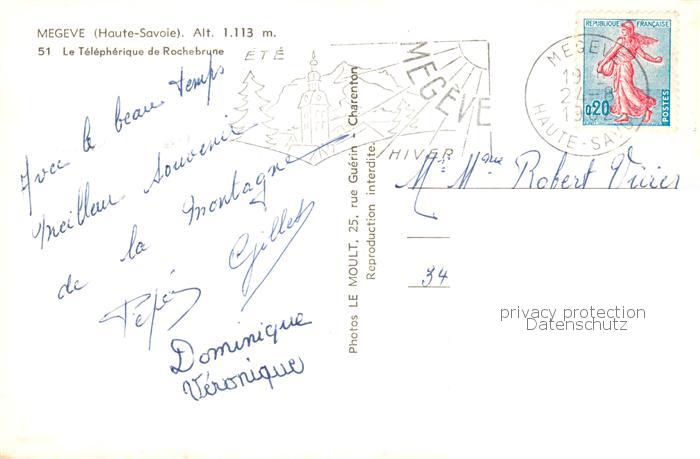 MEGEVE (Haute-Savoie). Alt. 1.113 m.
51 Le Téléphérique de Rochebrune
ÉTÉ
MEGÈVE
HIVER
MEGEVE
19
24-8
19
HAUTE-SAVOIE
REPUBLIQUE FRANÇAISE
0,20
POSTES
Avec le beau temps
Meilleur souvenir
de la montagne
Gillet
Dominique
Véronique
Photos LE MOULT, 25, rue Guérin - Charenton
Reproduction interdite.
Mr Mme Robert
34
privacy protection
Datenschutz